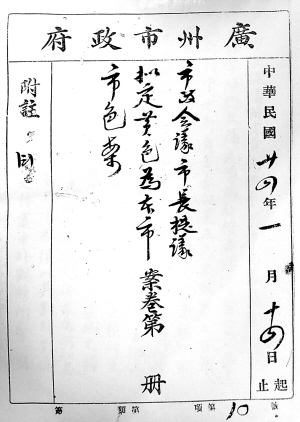 廣州市政府
中華民國廿四年一月十四日起止
市政會議市長提議
擬定黃色為本市
市色案
案卷第 冊
附註
第 類第 項第10號